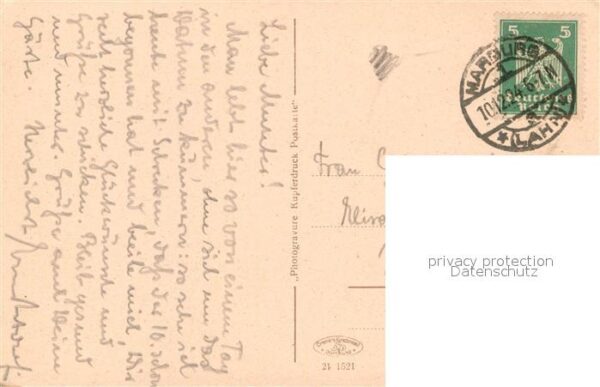 Liebe Mutter!
Man lebt hier so von einem Tag
in den andern, ohne sich um das
Wann zu kümmern: so sehe ich
heute mit Schrecken, daß der 10. schon
begonnen hat und beeile mich, Dir
recht herzliche Glückwünsche und
Grüße zu schicken. Bleib gesund
und munter. Grüße auch Deine
Gäste. Herzlichst
"Photogravure Kupferdruck Postkarte"
Frau
5 5
MARBURG
10.12.24. 6-7 N
Deutsches
Reich
* (LAHN)
21 1521
privacy protection
Datenschutz